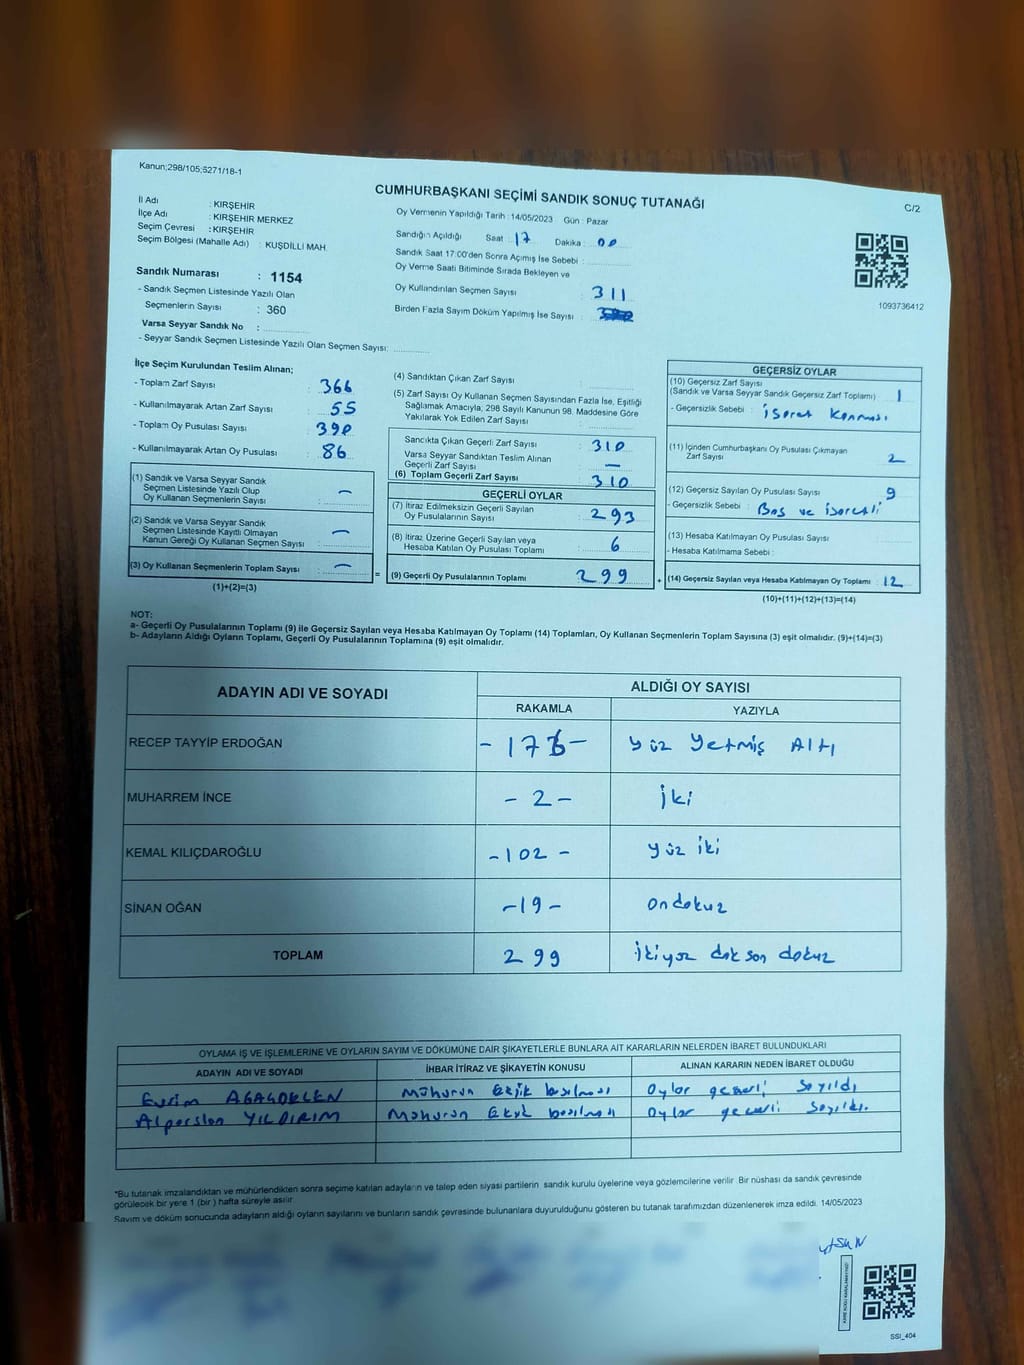 Kanun;298/105;5271/18-1
CUMHURBAŞKANI SEÇİMİ SANDIK SONUÇ TUTANAĞI
C/2
İl Adı : KIRŞEHİR
İlçe Adı : KIRŞEHİR MERKEZ
Seçim Çevresi : KIRŞEHİR
Seçim Bölgesi (Mahalle Adı) : KUŞDİLLİ MAH.
Sandık Numarası : 1154
- Sandık Seçmen Listesinde Yazılı Olan
Seçmenlerin Sayısı : 360
Varsa Seyyar Sandık No :
- Seyyar Sandık Seçmen Listesinde Yazılı Olan Seçmen Sayısı:
Oy Vermenin Yapıldığı Tarih : 14/05/2023 Gün : Pazar
Sandığın Açıldığı Saat : 17 Dakika : 00
Sandık Saat 17:00'den Sonra Açılmış İse Sebebi :
Oy Verme Saati Bitiminde Sırada Bekleyen ve
Oy Kullandırılan Seçmen Sayısı : 311
Birden Fazla Sayım Döküm Yapılmış İse Sayısı :
1093736412
İlçe Seçim Kurulundan Teslim Alınan;
- Toplam Zarf Sayısı : 366
- Kullanılmayarak Artan Zarf Sayısı : 55
- Toplam Oy Pusulası Sayısı : 390
- Kullanılmayarak Artan Oy Pusulası : 86
(1) Sandık ve Varsa Seyyar Sandık
Seçmen Listesinde Yazılı Olup
Oy Kullanan Seçmenlerin Sayısı : —
(2) Sandık ve Varsa Seyyar Sandık
Seçmen Listesinde Kayıtlı Olmayan
Kanun Gereği Oy Kullanan Seçmen Sayısı : —
(3) Oy Kullanan Seçmenlerin Toplam Sayısı : —
(1)+(2)=(3)
(4) Sandıktan Çıkan Zarf Sayısı :
(5) Zarf Sayısı Oy Kullanan Seçmen Sayısından Fazla İse, Eşitliği
Sağlamak Amacıyla, 298 Sayılı Kanunun 98. Maddesine Göre
Yakılarak Yok Edilen Zarf Sayısı :
Sandıkta Çıkan Geçerli Zarf Sayısı : 310
Varsa Seyyar Sandıktan Teslim Alınan
Geçerli Zarf Sayısı : —
(6) Toplam Geçerli Zarf Sayısı : 310
GEÇERLİ OYLAR
(7) İtiraz Edilmeksizin Geçerli Sayılan
Oy Pusulalarının Sayısı : 293
(8) İtiraz Üzerine Geçerli Sayılan veya
Hesaba Katılan Oy Pusulası Toplamı : 6
= (9) Geçerli Oy Pusulalarının Toplamı : 299 +
GEÇERSİZ OYLAR
(10) Geçersiz Zarf Sayısı
(Sandık ve Varsa Seyyar Sandık Geçersiz Zarf Toplamı) : 1
- Geçersizlik Sebebi : işaret Konması
(11) İçinden Cumhurbaşkanı Oy Pusulası Çıkmayan
Zarf Sayısı : 2
(12) Geçersiz Sayılan Oy Pusulası Sayısı : 9
- Geçersizlik Sebebi : Boş ve işaretli
(13) Hesaba Katılmayan Oy Pusulası Sayısı :
- Hesaba Katılmama Sebebi :
(14) Geçersiz Sayılan veya Hesaba Katılmayan Oy Toplamı : 12
(10)+(11)+(12)+(13)=(14)
NOT:
a- Geçerli Oy Pusulalarının Toplamı (9) ile Geçersiz Sayılan veya Hesaba Katılmayan Oy Toplamı (14) Toplamları, Oy Kullanan Seçmenlerin Toplam Sayısına (3) eşit olmalıdır. (9)+(14)=(3)
b- Adayların Aldığı Oyların Toplamı, Geçerli Oy Pusulalarının Toplamına (9) eşit olmalıdır.
ADAYIN ADI VE SOYADI
ALDIĞI OY SAYISI
RAKAMLA YAZIYLA
RECEP TAYYİP ERDOĞAN -176- yüz Yetmiş Altı
MUHARREM İNCE -2- iki
KEMAL KILIÇDAROĞLU -102- yüz iki
SİNAN OĞAN -19- ondokuz
TOPLAM 299 ikiyüz doksan dokuz
OYLAMA İŞ VE İŞLEMLERİNE VE OYLARIN SAYIM VE DÖKÜMÜNE DAİR ŞİKAYETLERLE BUNLARA AİT KARARLARIN NELERDEN İBARET BULUNDUKLARI
ADAYIN ADI VE SOYADI İHBAR İTİRAZ VE ŞİKAYETİN KONUSU ALINAN KARARIN NEDEN İBARET OLDUĞU
Evrim Mührün Eksik basılması Oylar geçerli sayıldı
Alparslan YILDIRIM Mührün Eksik basılması Oylar geçerli sayıldı.
*Bu tutanak imzalandıktan ve mühürlendikten sonra seçime katılan adayların ve talep eden siyasi partilerin sandık kurulu üyelerine veya gözlemcilerine verilir. Bir nüshası da sandık çevresinde
görülecek bir yere 1 (bir) hafta süreyle asılır.
Sayım ve döküm sonucunda adayların aldığı oyların sayılarını ve bunların sandık çevresinde bulunanlara duyurulduğunu gösteren bu tutanak tarafımızdan düzenlenerek imza edildi. 14/05/2023
SSI_404